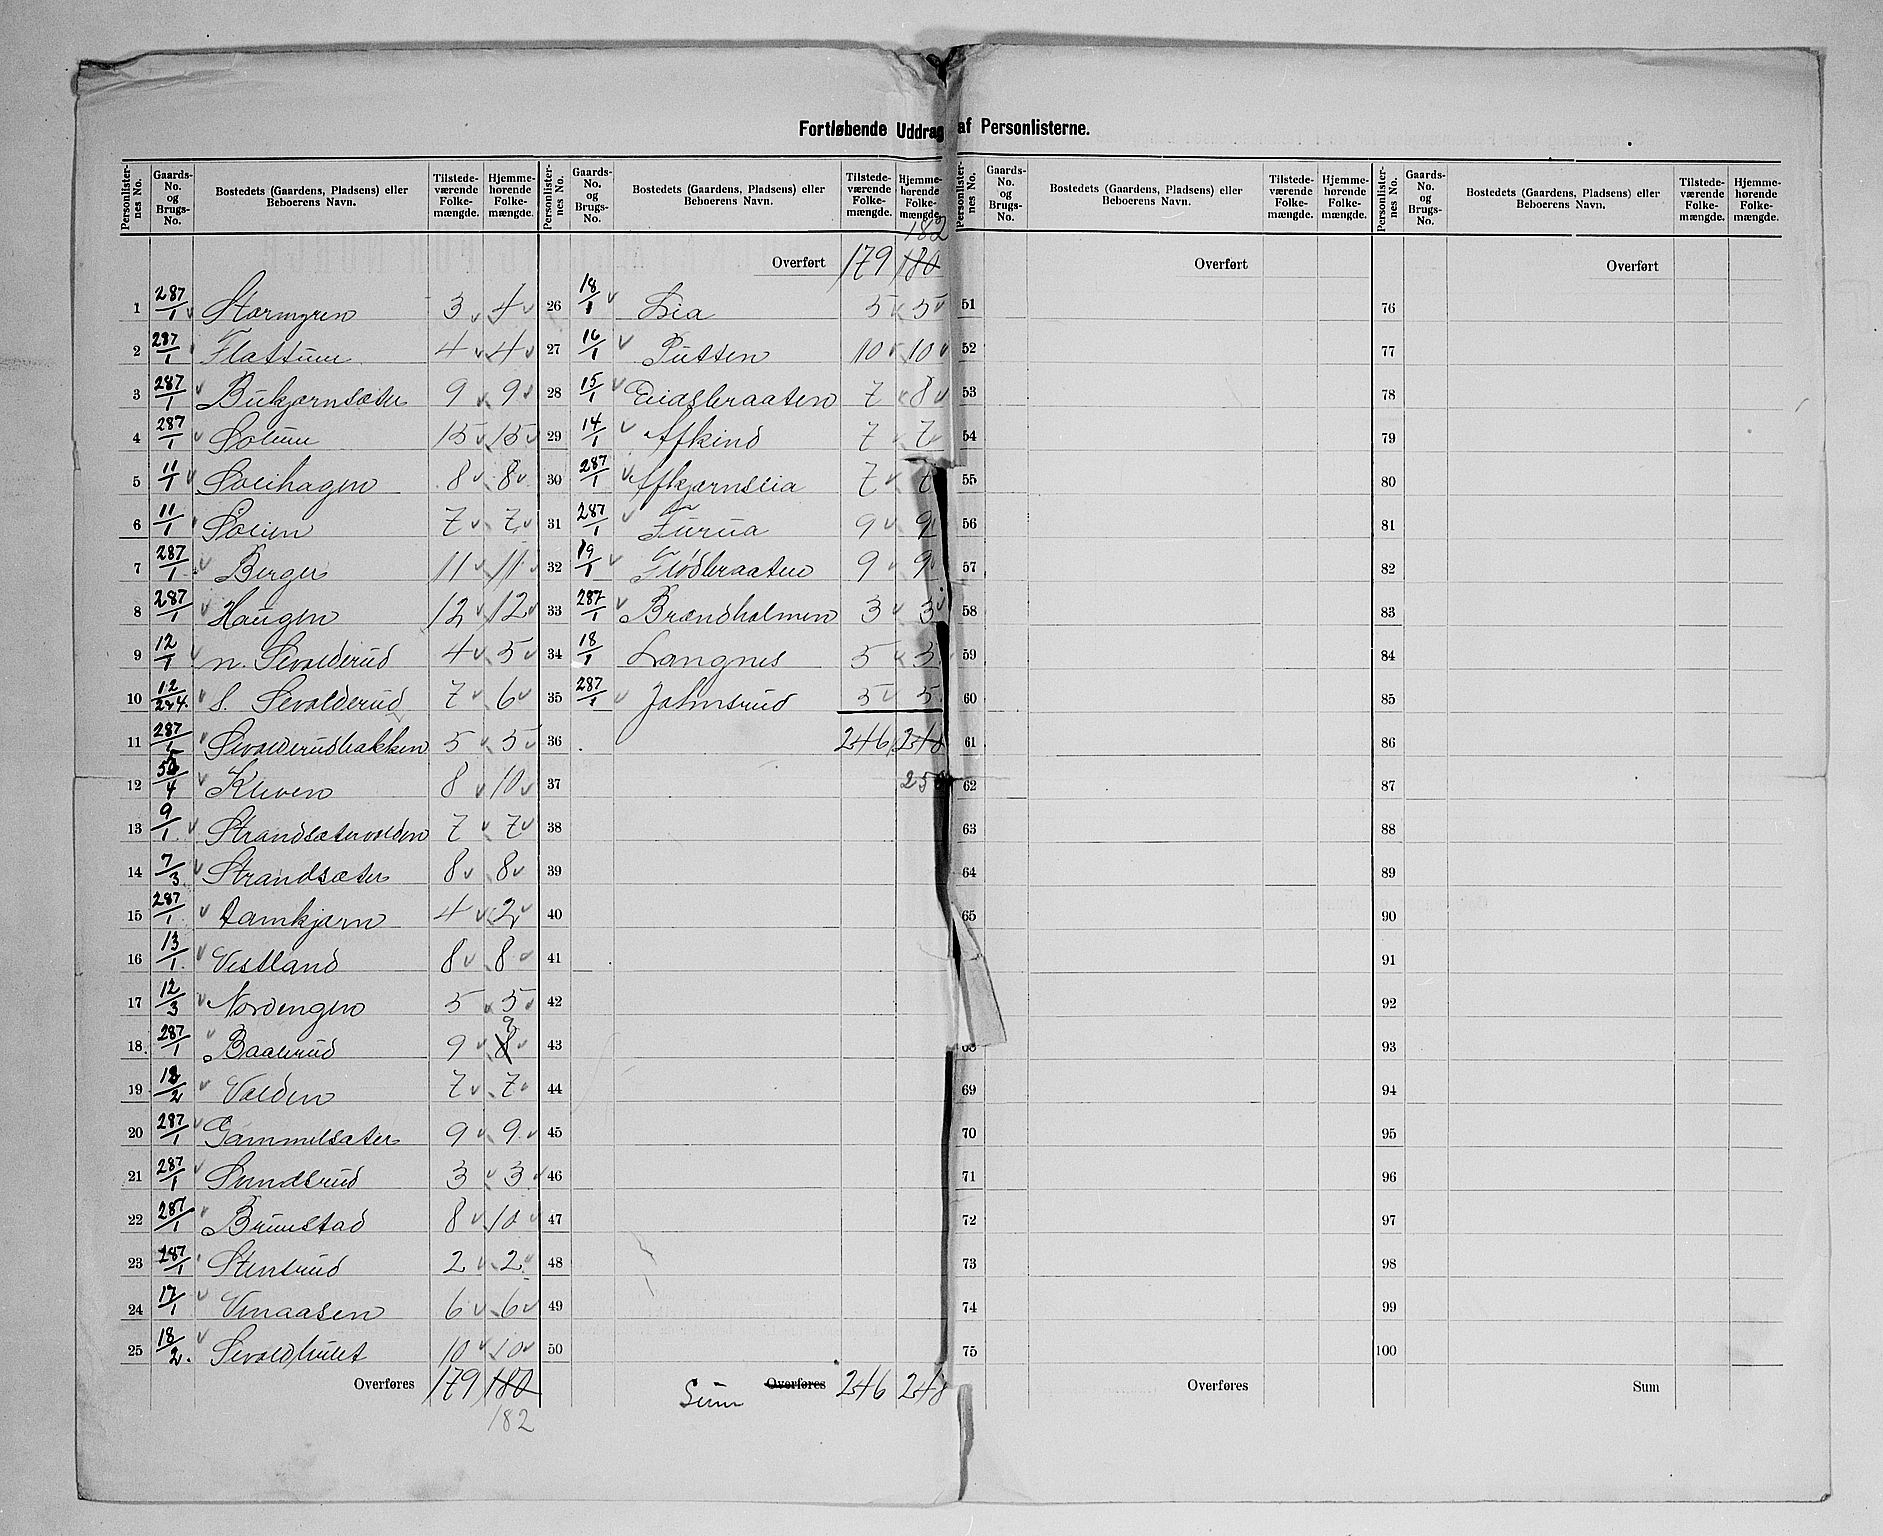 Fortløbende Uddrag af Personlisterne.
Personlisternes No. Gaards-No. og Brugs-No. Bostedets (Gaardens, Pladsens) eller Beboerens Navn. Tilstedeværende Folkemængde. Hjemmehørende Folkemængde.
1 287/1 Stormyren 3 4
2 287/1 Flattum 4 4
3 287/1 Bukjernsæter 9 9
4 287/1 Solum 15 15
5 11/1 Solihagen 8 8
6 11/1 Solien 7 7
7 287/1 Berger 11 11
8 287/1 Haugen 12 12
9 12/1 n. Sevalderud 4 5
10 12/2&4. s. Sevalderud 7 6
11 287/1 Sevalderudbakken 5 5
12 4 Kliven 8 10
13 9/1. Strandsætervolden 7 7
14 7/3 Strandsæter 8 8
15 287/1. Damkjern 4 2
16 13/1. Vestland 8 8
17 12/3 Nordengen 5 5
18 287/1 Baalerud 9 8 9
19 12/2 Volden 7 7
20 287/1 Gammelsæter 9 9
21 287/1 Sundsrud 3 3
22 287/1 Brunstad 8 10
23 287/1 Stensrud 2 2
24 17/1 Vinaasen 6 6
25 18/2. Sevaldhulet 10 10
Overføres 179 180
182
Personlisternes No. Gaards-No. og Brugs-No. Bostedets (Gaardens, Pladsens) eller Beboerens Navn. Tilstedeværende Folkemængde. Hjemmehørende Folkemængde.
182
Overført 179 180
26 18/1 Lia 5 5
27 16/1 Putten 10 10
28 15/1 Eidsbraaten 7 8
29 14/1 Afkind 7 7
30 287/1 Afkjernslia 7 7
31 287/1 Furua 9 9
32 19/1 Flødbraaten 9 9
33 287/1 Brændholmen 3 3
34 18/1 Langnes 5 3
35 287/1 Johnsrud 5 5
36 246 248
37 25
38
39
40
41
42
43
44
45
46
47
48
49
50
Sum Overføres 246 248
Personlisternes No. Gaards-No. og Brugs-No. Bostedets (Gaardens, Pladsens) eller Beboerens Navn. Tilstedeværende Folkemængde. Hjemmehørende Folkemængde.
Overført
51
52
53
54
55
56
57
58
59
60
61
62
63
64
65
68
69
70
71
72
73
74
75
Overføres
Personlisternes No. Gaards-No. og Brugs-No. Bostedets (Gaardens, Pladsens) eller Beboerens Navn. Tilstedeværende Folkemængde. Hjemmehørende Folkemængde.
Overført
76
77
78
79
80
81
82
83
84
85
86
87
88
89
90
91
92
93
94
95
96
97
98
99
100
Sum